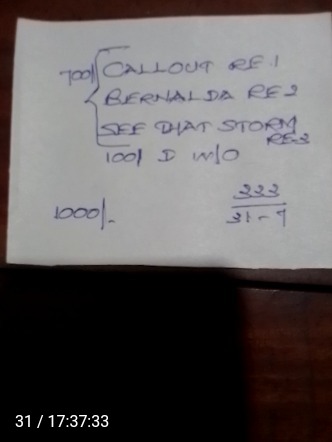 700/ CALLOUT RE.1
BERNALDA RE2
SEE THAT STORM
RE3
100/ D W/O
1000/-
333
31-7
31 / 17:37:33